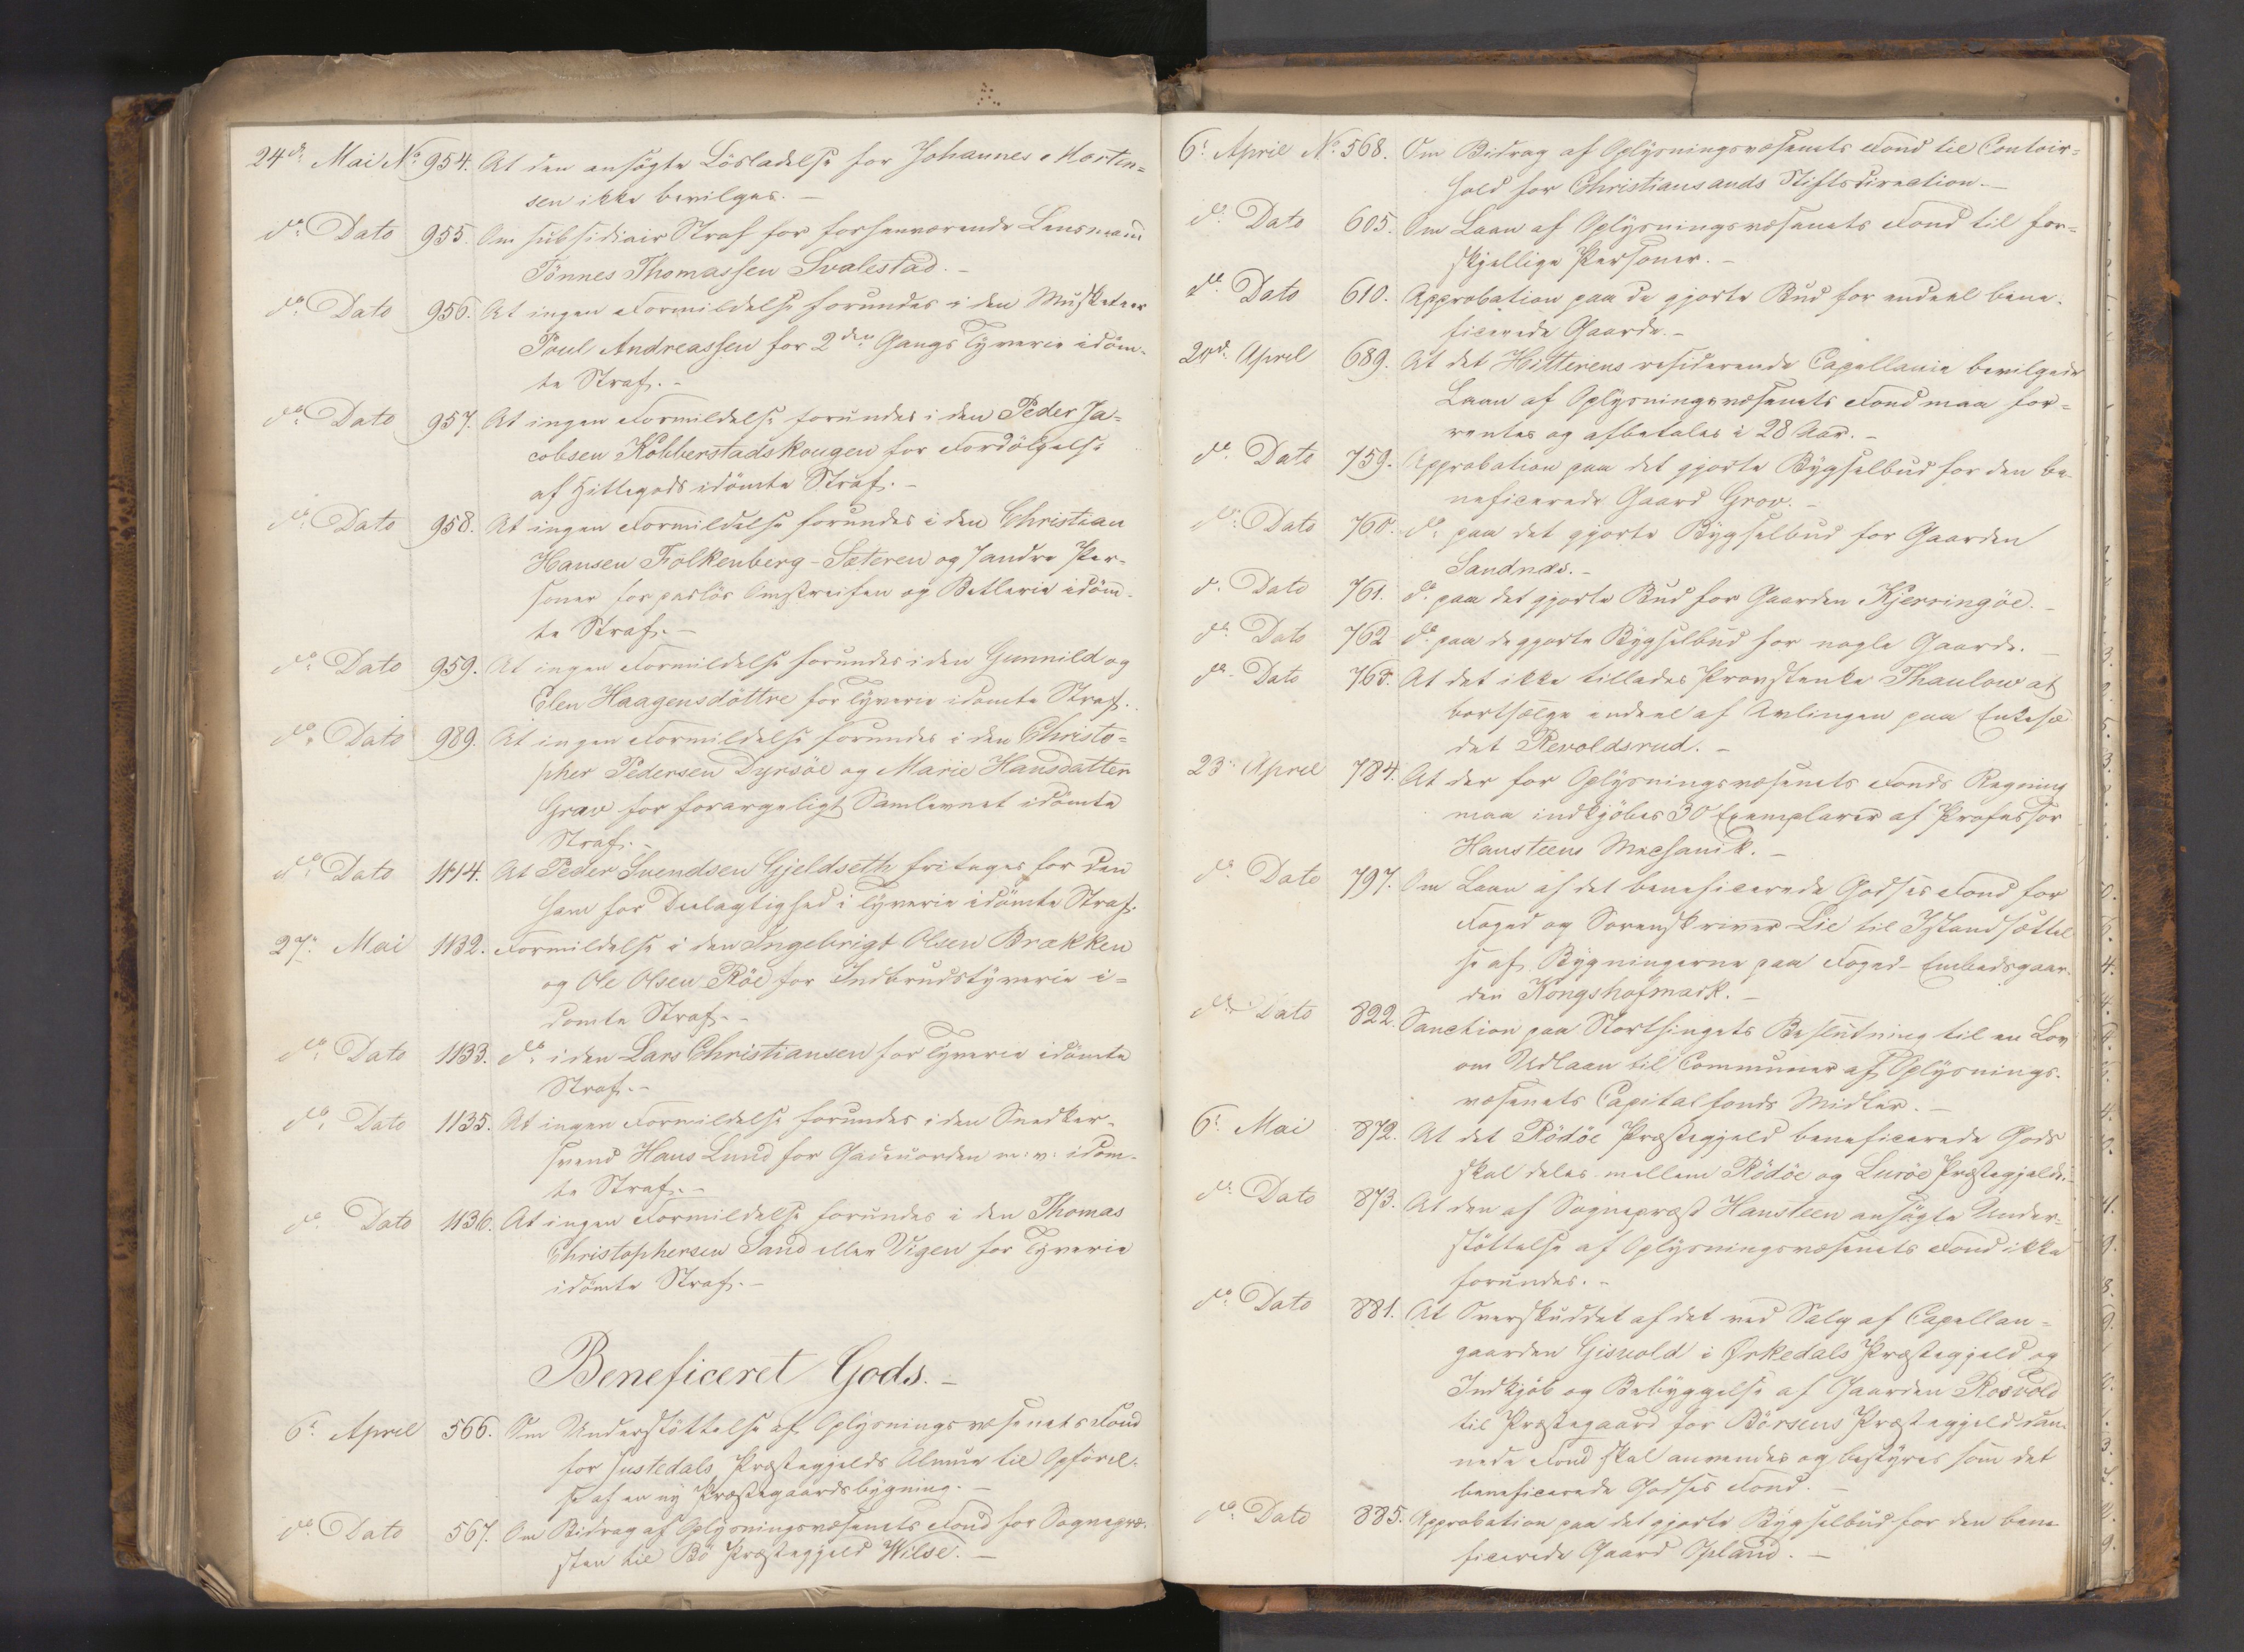 24de Mai No 954. At den ansögte Lösladelse for Johannes Morten=
sen ikke bevilges. -
do Dato 955. Om subsidiair Straf for forhenværende Lensmand
Tönnes Thomassen Svalestad. -
do Dato 956. At ingen Formildelse forundes i den Musketeer
Poul Andreassen for 2den Gangs Tyverie idöm-
te Straf. -
do Dato 957. At ingen Formildelse forundes i den Peder Ja=
cobsen Kobberstadskougen for Fordölgelse
af Hittegods idömte Straf. -
do Dato 958. At ingen Formildelse forundes i den Christian
Hansen Folkenberg-Sæteren og 7 andre Per-
soner for paslös Omstreifen og Betlerie idöm-
te Straf. -
do Dato 959. At ingen Formildelse forundes i den Gunnild og
Elen Haagensdöttre for Tyverie idömte Straf. -
do Dato 989. At ingen Formildelse forundes i den Christo=
pher Pedersen Dyrsöe og Marie Hansdatter
Grav for forargeligt Samlevnet idömte
Straf. -
do Dato 1114. At Peder Svendsen Gjeldseth fritages for den
ham for Deelagtighed i Tyverie idömte Straf.
27. Mai 1132. Formildelse i den Ingebrigt Olsen Brækken
og Ole Olsen Röe for Indbrudstyverie i=
dömte Straf. -
do Dato 1133. do i den Lars Christiansen for Tyverie idömte
Straf. -
do Dato 1135. At ingen Formildelse forundes i den Snedker-
svend Hans Lund for Gadeuorden m: v: idöm-
te Straf. -
do Dato 1136. At ingen Formildelse forundes i den Thomas
Christophersen Sand eller Vigen for Tyverie
idömte Straf. -
Beneficeret Gods. -
6te April 566. Om Understöttelse af Oplysningsvæsenets Fond
for Justedals Præstegjelds Almue til Opförel-
se af en ny Præstegaardsbygning. -
do Dato 567. Om Bidrag af Oplysningsvæsenets Fond for Sognepræ-
sten til Bö Præstegjeld Wilse. -
6te April No 568. Om Bidrag af Oplysningsvæsenets Fond til Contoir=
hold for Christiansands Stiftsdirection. -
do Dato 605. Om Laan af Oplysningsvæsenets Fond til for=
skjellige Personer. -
do Dato 610. Approbation paa de gjorte Bud for endeel bene-
ficerede Gaarde. -
20de April 689. At det Hitterens residerende Capellanie bevilgede
Laan af Oplysningsvæsenets Fond maa for=
rentes og afbetales i 28 Aar. -
do Dato 759. Approbation paa det gjorte Bygselbud for den be-
neficerede Gaard Grov. -
do Dato 760. do paa det gjorte Bygselbud for Gaarden
Sandnæs. -
do Dato 761. do paa det gjorte Bud for Gaarden Kjerringöe. -
do Dato 762 do paa de gjorte Bygselbud for nogle Gaarde. -
do Dato 763. At det ikke tillades Provstenke Thaulow at
bortsælge endeel af Avlingen paa Enkesæ
det Revoldsrud. -
23. April 784. At der for Oplysningsvæsenets Fonds Regning
maa indkjöbes 30 Exemplarer af Professor
Hansteens Mechanik. -
do Dato 797. Om Laan af det beneficerede Godses Fond for
Foged og Sorenskriver Lie til Istandsættel
se af Bygningerne paa Foged-Embedsgaar-
den Kongshofmark. -
do Dato 822. Sanction paa Storthingets Beslutning til en Lov
om Udlaan til Communer af Oplysnings-
væsenets Capitalfonds Midler. -
6te Mai 872. At det Rödöe Præstegjeld beneficerede Gods
skal deles mellem Rödöe og Luröe Præstegjelde.
do Dato 873. At den af Sognepræst Hansteen ansögte Under-
stöttelse af Oplysningsvæsenets Fond ikke
forundes. -
do Dato 881. At Overskuddet af det ved Salg af Capellan=
gaarden Gisvold i Ørkedals Præstegjeld og
Indkjöb og Bebyggelse af Gaarden Rosvold
til Præstegaard for Börsens Præstegjeld dan-
nede Fond skal anvendes og bestyres som det
beneficerede Godses Fond. -
do Dato 885. Approbation paa det gjorte Bygselbud for den bene
ficerede Gaard Opland. -